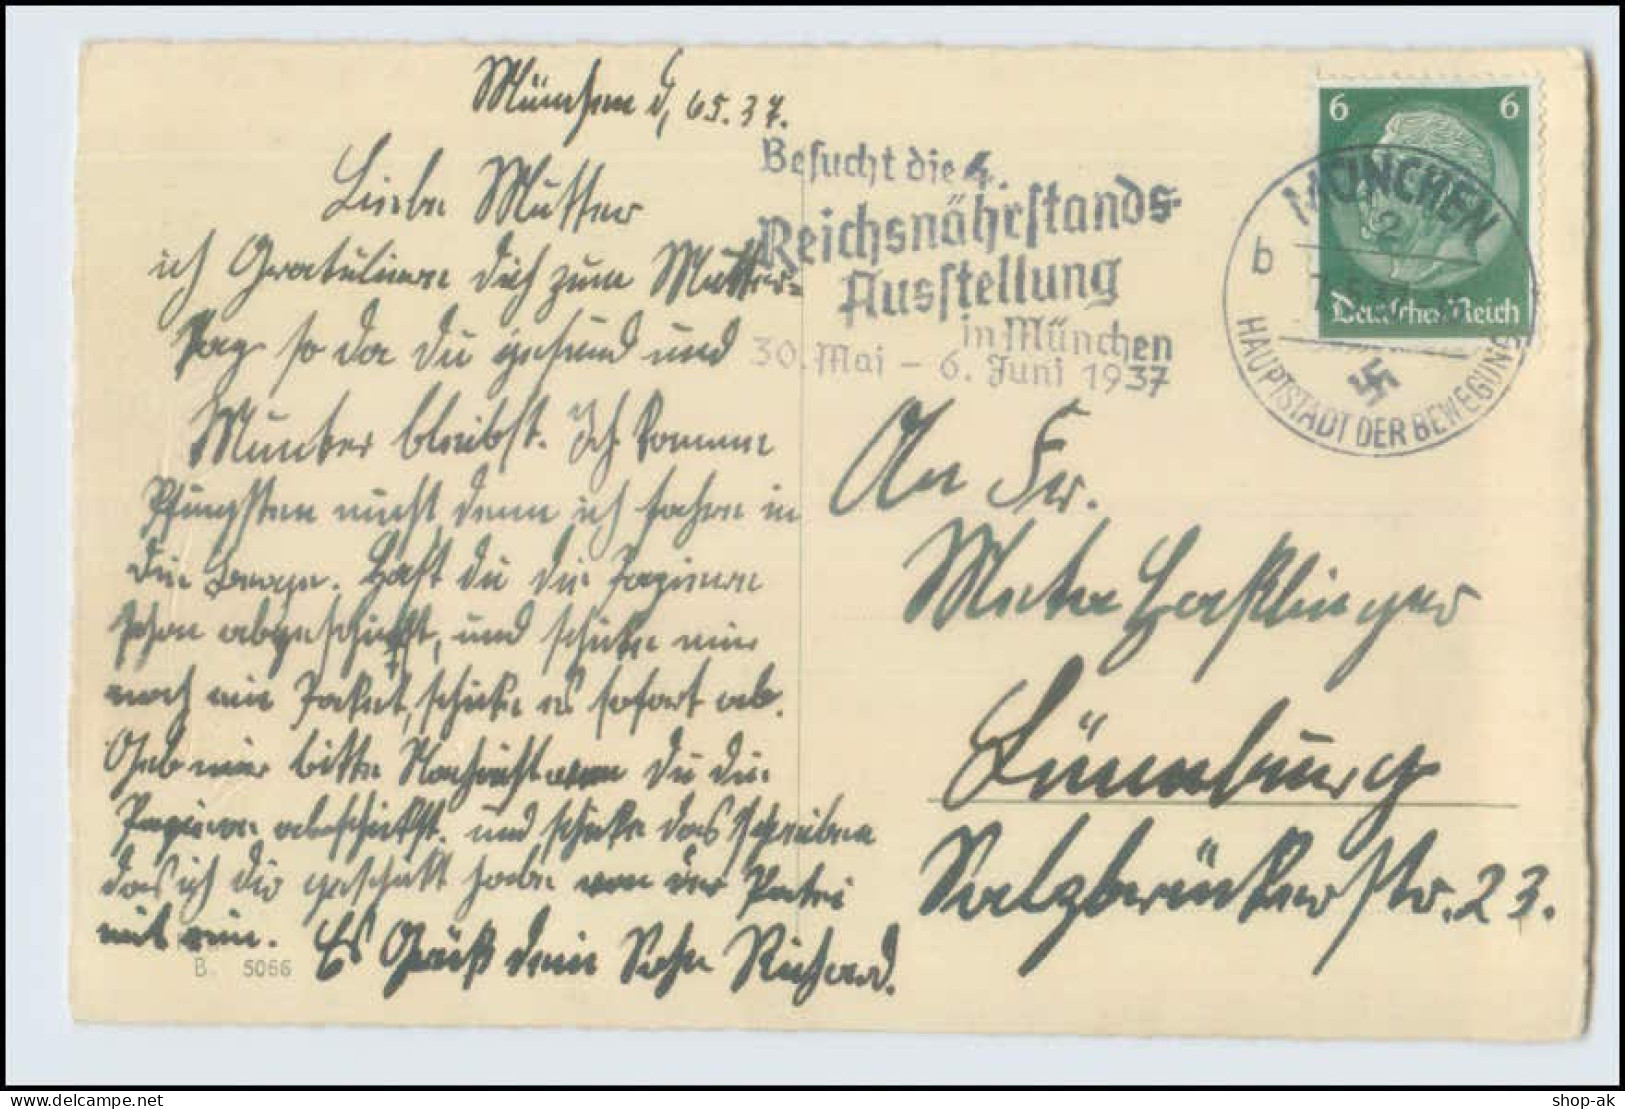 München d, 6 5. 37.
Liebe Mutter
ich Gratuliere dich zum Mutter=
Tag so da du gesund und
Munter bleibst. Ich komme
Pfingsten nicht, denn ich fahre in
die Berge. Hast du die Papiere
schon abgeschickt, und schicke mir
noch ein Paket, schicke es sofort ab.
Geb mir bitte Nachricht wenn du die
Papiere abschickst. und schicke das schreiben
das ich dir geschickt habe von der Partei
mit ein. Es Grüßt dein Sohn Richard.
B. 5066
Besucht die 4.
Reichsnährstands-
Ausstellung
in München
30. Mai - 6. Juni 1937
6 6
Deutsches Reich
MÜNCHEN
2
b
HAUPTSTADT DER BEWEGUNG
An Fr.
Meta Haßlinger
Lüneburg
Salzbrückerstr. 23.
shop-ak